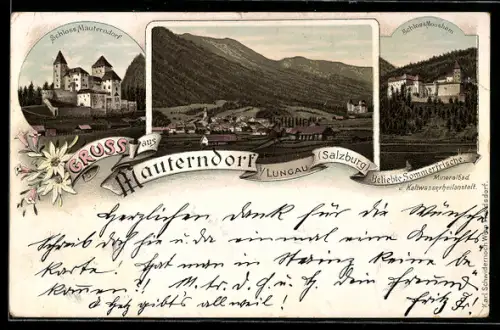 Schloss Mauterndorf
Schloss Moosham
GRUSS aus
Mauterndorf
i/ LUNGAU (Salzburg)
beliebte Sommerfrische.
Mineralbad
u. Kaltwasserheilanstalt.
Herzlichen Dank für die Wünsche
Schreib doch hie u. da einmal eine Ansichts
karte. Hat man in Steinz keine be
kommen!! M. tr. d. G. u. H. dein Freund
a Hetz gibt's allweil! Fritz
Karl Schwidernoch, Wien